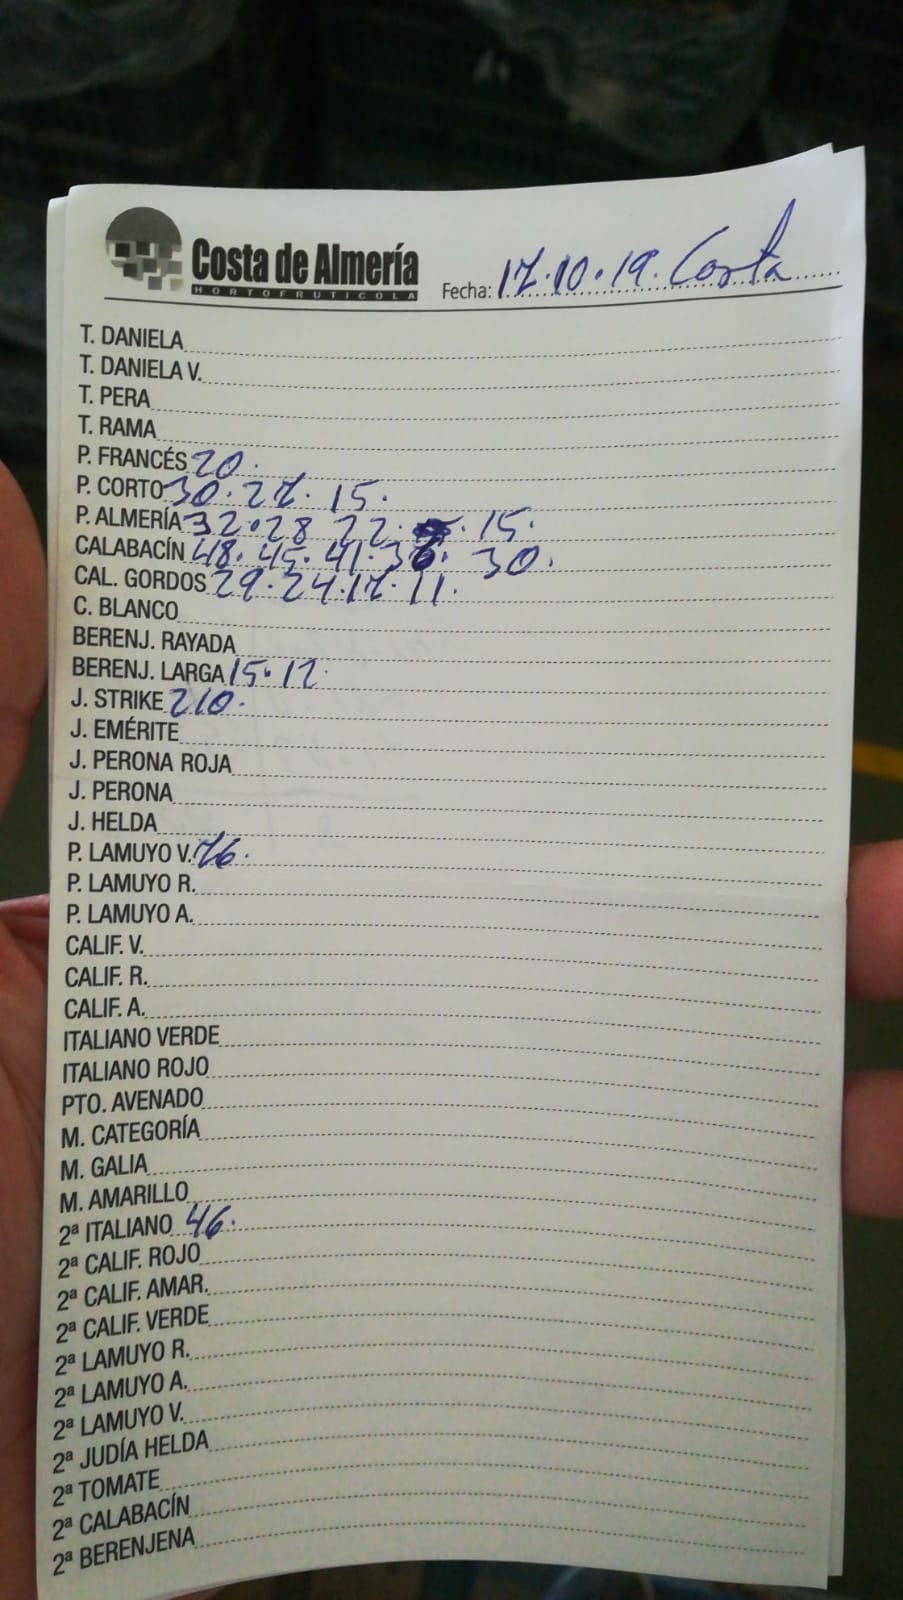 Costa de Almería
HORTOFRUTICOLA
Fecha: 17.10.19. Costa
T. DANIELA
T. DANIELA V.
T. PERA
T. RAMA
P. FRANCÉS 20.
P. CORTO 30. 27. 15.
P. ALMERÍA 32. 28 22. 15.
CALABACÍN 48. 45. 41. 36. 30.
CAL. GORDOS 29. 24. 17. 11.
C. BLANCO
BERENJ. RAYADA
BERENJ. LARGA 15. 12.
J. STRIKE 210.
J. EMÉRITE
J. PERONA ROJA
J. PERONA
J. HELDA
P. LAMUYO V. 76.
P. LAMUYO R.
P. LAMUYO A.
CALIF. V.
CALIF. R.
CALIF. A.
ITALIANO VERDE
ITALIANO ROJO
PTO. AVENADO
M. CATEGORÍA
M. GALIA
M. AMARILLO
2ª ITALIANO 46.
2ª CALIF. ROJO
2ª CALIF. AMAR.
2ª CALIF. VERDE
2ª LAMUYO R.
2ª LAMUYO A.
2ª LAMUYO V.
2ª JUDÍA HELDA
2ª TOMATE
2ª CALABACÍN
2ª BERENJENA